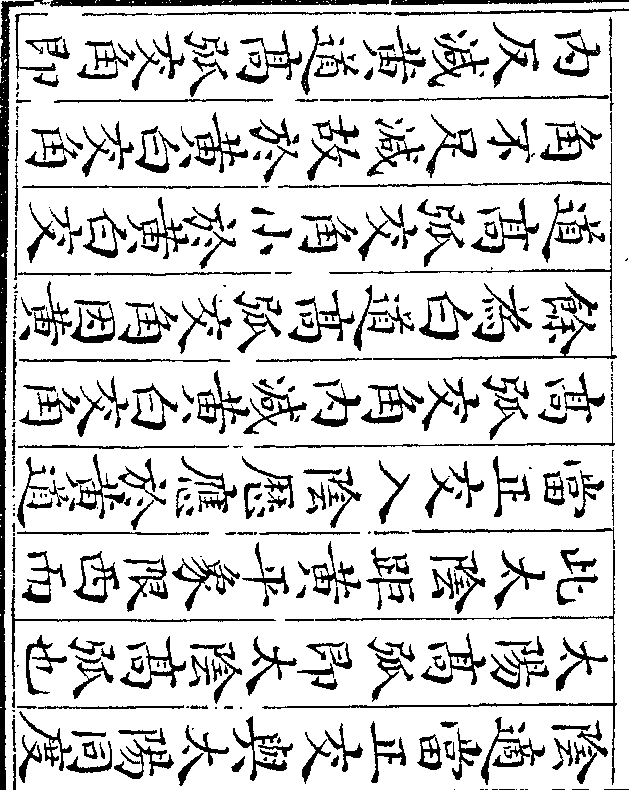 陰適當正交與太陽同度
太陽高弧即太陰高弧也
此太陰距黃平象限西而
當正交入陰歷應於黃道
高弧交角内減黃白交角
餘為白道高弧交角因黃
道高弧交角小於黃白交
角不足減故於黃白交角
内反減黃道高弧交角即